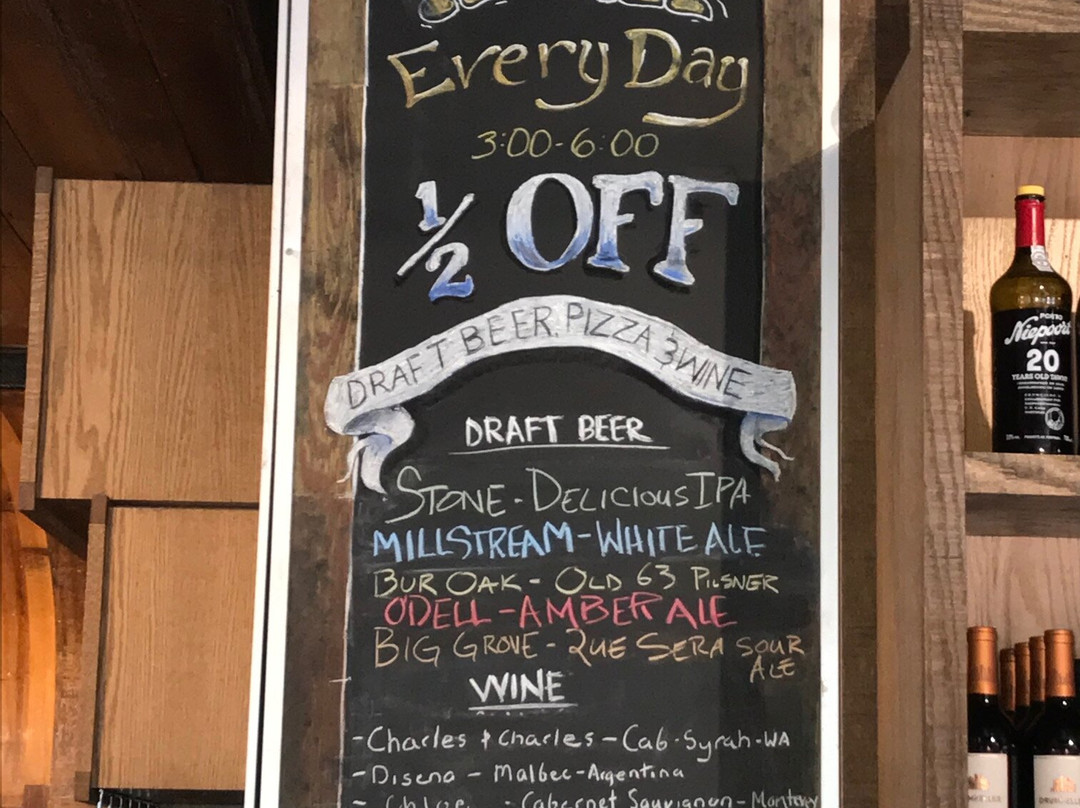 Every Day
3:00-6:00
1/2 OFF
DRAFT BEER, PIZZA & WINE
DRAFT BEER
STONE - DELICIOUS IPA
MILLSTREAM - WHITE ALE
BUR OAK - OLD 63 PILSNER
O'DELL - AMBER ALE
BIG GROVE - QUE SERA SOUR
ALE
WINE
- Charles & Charles - Cab-Syrah-WA
- Diseno - Malbec-Argentina
- Chloe - Cabernet Sauvignon - Monterey
PORTO
Niepoort
20
YEARS OLD TAWNY